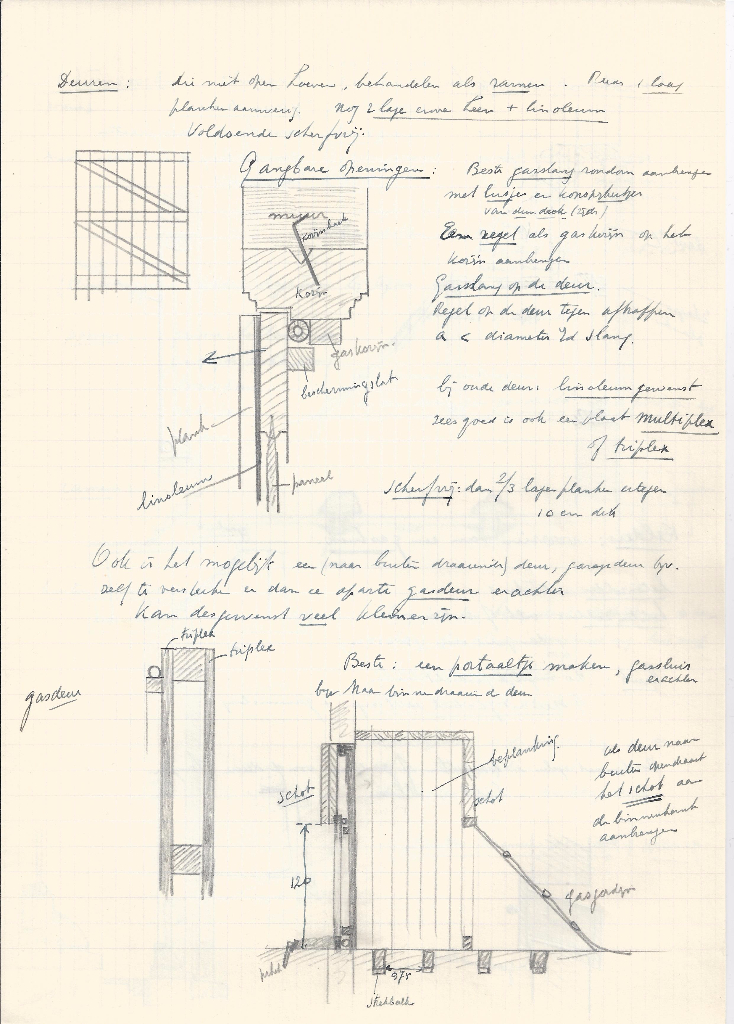 Deuren: die niet open hoeven, behandelen als ramen. Deur 1 laag
planken aanwezig. Nog 2 lage erover heen + linoleum
Voldoende scherfvrij.
Gangbare openingen:
Beste gasslang rondom aanbrengen
met lusjes en
van den doek (zijde)
Een regel als gaskozijn op het
kozijn aanbrengen
Gasslang op de deur.
Regel op de deur tegen
a < diameter v/d slang.
muur
kozijn
gaskozijn.
beschermingslat
plank
linoleum
paneel
bij oude deur: linoleum gewenst
zeer goed is ook een plaat multiplex
of triplex
scherfvrij: dan 2/3 lagen planken ertegen
10 cm dik
Ook is het mogelijk een (naar buiten draaiende) deur, garagedeur bv.
zelf te versterken en dan een aparte gasdeur erachter
Kan desgewenst veel kleiner zijn.
triplex
triplex
gasdeur
Beste: een portaaltje maken, gassluis
erachter
bv Naar binnendraaiende deur
beplanking.
schot
schot
als deur naar
buiten opendraait
het schot aan
de binnenkant
aanbrengen
120
gasgordijn
0,75